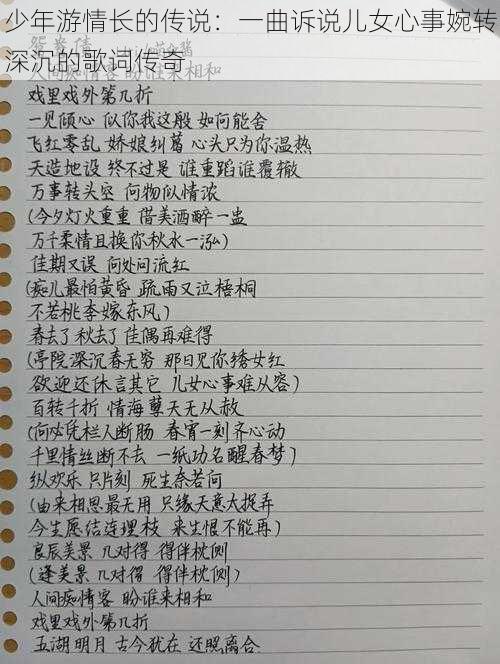 少年游情长的传说：一曲诉说儿女心事婉转
深沉的歌词传奇
鸳鸯债
人间痴情客 盼谁来相和
戏里戏外第几折
一见倾心 似你我这般 如何能舍
飞红零乱 娇娘纠葛 心头只为你温热
天造地设 终不过是 谁重蹈谁覆辙
万事转头空 何物似情浓
(今夕灯火重重 借美酒醉一盅
万千柔情且换你秋水一泓)
佳期又误 何处问流红
(痴儿最怕黄昏 疏雨又泣梧桐
不若桃李嫁东风)
春去了 秋去了 佳偶再难得
(亭院深沉春无穷 那日见你绣女红
欲迎还休言其它 儿女心事难从容)
百转千折 情海孽天无从赦
(何必凭栏人断肠 春宵一刻齐心动
千里情丝断不去 一纸功名醒春梦)
纵欢乐 只片刻 死生奈若何
(由来相思最无用 只缘天意太捉弄
今生愿结连理枝 来生恨不能再)
良辰美景 几对得 得伴枕侧
(逢美景 几对得 得伴枕侧)
人间痴情客 盼谁来相和
戏里戏外第几折
五湖明月 古今犹在 还照离合